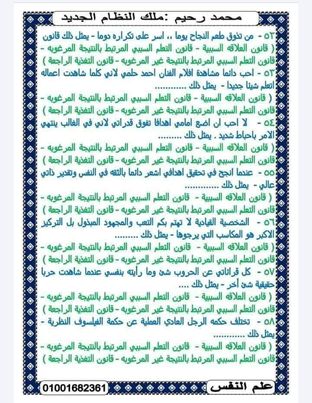 محمد رحيم : ملك النظام الجديد
٥٢ - من تذوق طعم النجاح يوما .. اسر على تكراره دوما - يمثل ذلك قانون
( قانون العلاقه السببية - قانون التعلم السببي المرتبط بالنتيجة المرغوبه -
قانون التعلم السببي المرتبط بالنتيجة غير المرغوبه - قانون التغذية الراجعة )
٥٣ - احب دائما مشاهدة افلام الفنان احمد حلمي لاني كلما شاهدت اعماله
اتعلم شيئا جديدا - يمثل ذلك .............
( قانون العلاقه السببية - قانون التعلم السببي المرتبط بالنتيجة المرغوبه -
قانون التعلم السببي المرتبط بالنتيجة غير المرغوبه - قانون التغذية الراجعة )
٥٤ - لا احب ان اضع امامي اهدافا تفوق قدراتي لاني في الغالب ينتهي
الامر باحباط شديد . يمثل ذلك .........
( قانون العلاقه السببية - قانون التعلم السببي المرتبط بالنتيجة المرغوبه -
قانون التعلم السببي المرتبط بالنتيجة غير المرغوبه - قانون التغذية الراجعة )
٥٥ - عندما انجح في تحقيق اهدافي اشعر دائما بالثقه في النفس وتقدير ذاتي
عالي - يمثل ذلك .............
( قانون العلاقه السببية - قانون التعلم السببي المرتبط بالنتيجة المرغوبه -
قانون التعلم السببي المرتبط بالنتيجة غير المرغوبه - قانون التغذية الراجعة )
٥٦ - الشخصية القيادية لا تهتم بكم التعب والمجهود المبذول بل التركيز
الاكبر هو المكاسب التي يرجوها - يمثل ذلك .........
( قانون العلاقه السببية - قانون التعلم السببي المرتبط بالنتيجة المرغوبه -
قانون التعلم السببي المرتبط بالنتيجة غير المرغوبه - قانون التغذية الراجعة )
٥٧ - كل قراءاتي عن الحروب شئ وما رأيته بنفسي عندما شاهدت حربا
حقيقية شئ أخر - يمثل ذلك ....
( قانون العلاقه السببية - قانون التعلم السببي المرتبط بالنتيجة المرغوبه -
قانون التعلم السببي المرتبط بالنتيجة غير المرغوبه - قانون التغذية الراجعة )
٥٨ - تختلف حكمه الرجل العادي العملية عن حكمة الفيلسوف النظرية -
يمثل ذلك ..............
( قانون العلاقه السببية - قانون التعلم السببي المرتبط بالنتيجة المرغوبه -
قانون التعلم السببي المرتبط بالنتيجة غير المرغوبه - قانون التغذية الراجعة )
علم النفس
01001682361